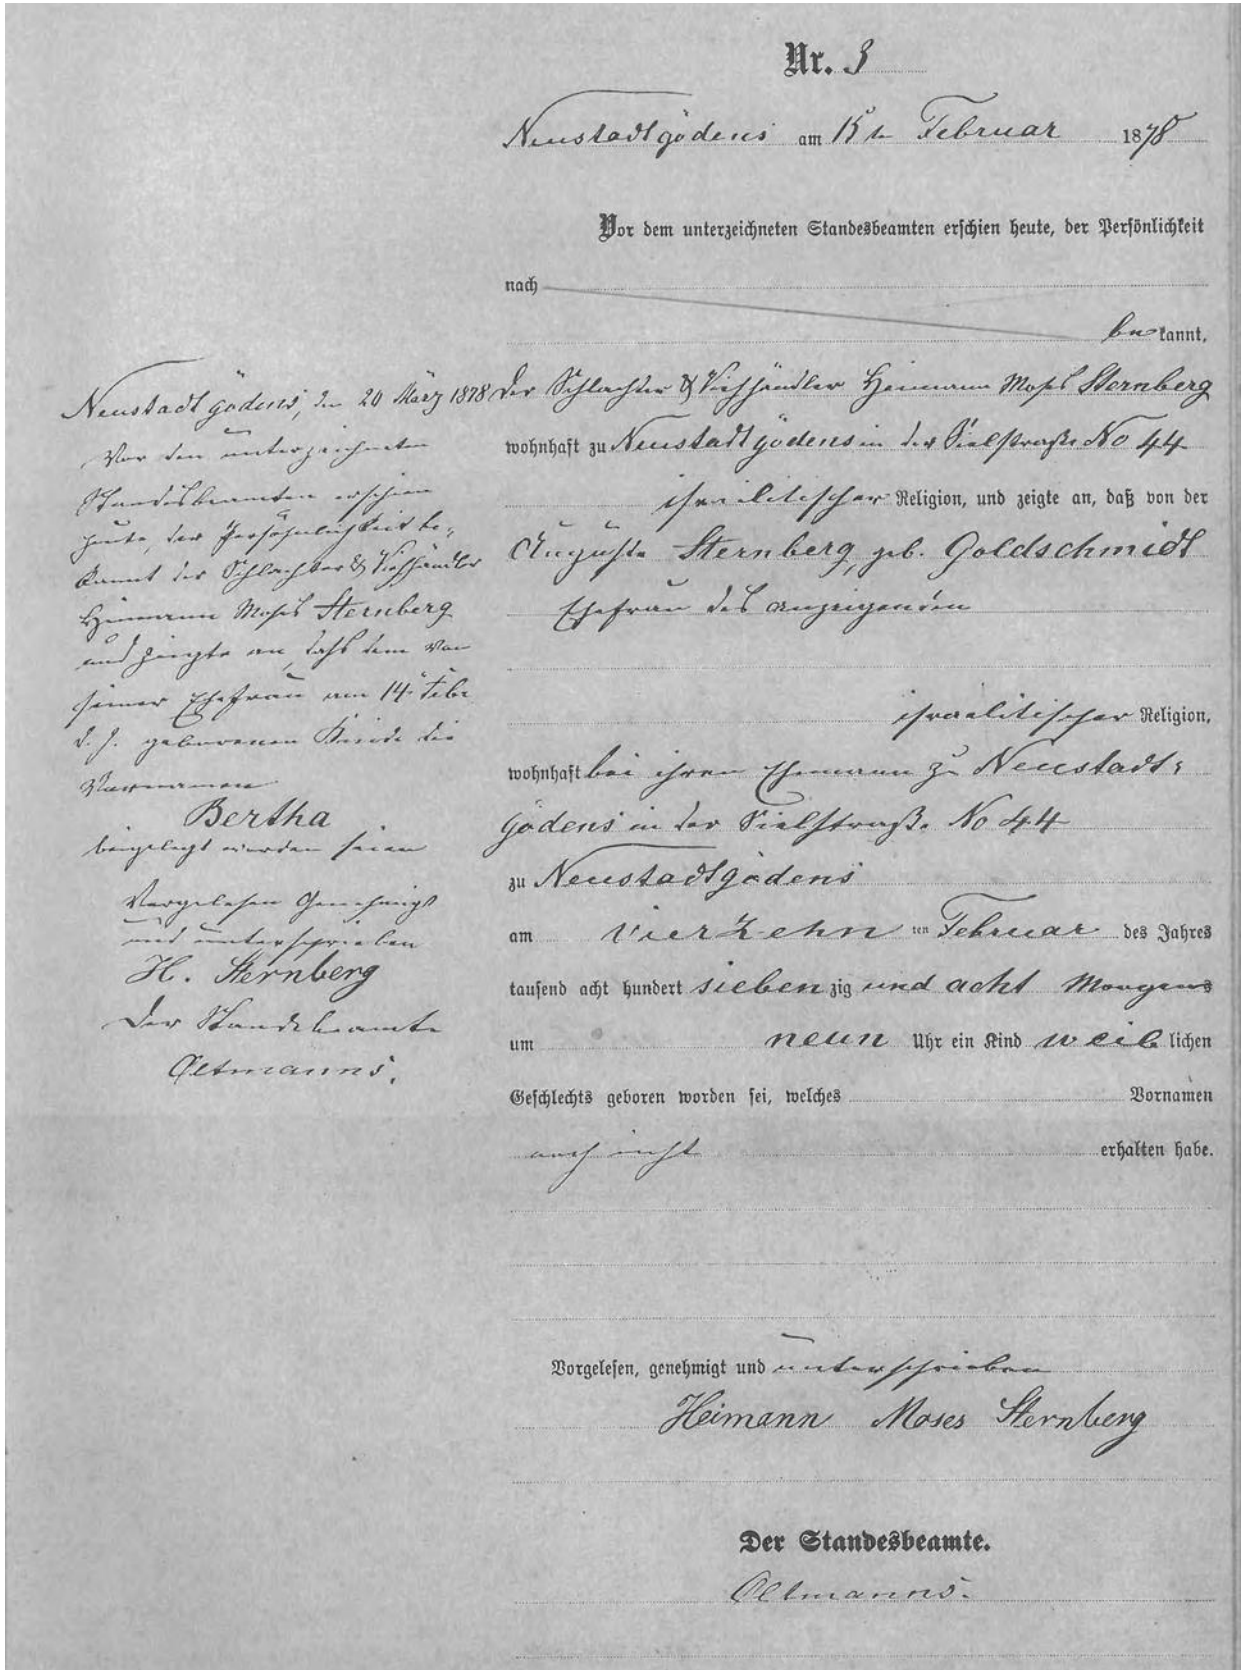 Nr. 3
Neustadtgödens am 15ten Februar 1878
Vor dem unterzeichneten Standesbeamten erschien heute, der Persönlichkeit
nach
bekannt,
der Schlachter & Viehhändler Heimann Moses Sternberg
wohnhaft zu Neustadtgödens in der Sielstraße No 44
israelitischer Religion, und zeigte an, daß von der
Auguste Sternberg, geb. Goldschmidt
Ehefrau des Anzeigenden
israelitischer Religion,
wohnhaft bei ihren Ehemann zu Neustadt-
gödens in der Sielstraße No 44
zu Neustadtgödens
am vierzehnten Februar des Jahres
tausend acht hundert siebenzig und acht Morgens
um neun Uhr ein Kind weiblichen
Geschlechts geboren worden sei, welches Vornamen
noch nicht erhalten habe.
Vorgelesen, genehmigt und unterschrieben
Heimann Moses Sternberg
Der Standesbeamte.
Oltmanns.
Neustadtgödens, den 20 März 1878
Vor den unterzeichneten
Standesbeamten erschien
heute, der Persönlichkeit be-
kannt der Schlachter & Viehhändler
Heimann Moses Sternberg
und zeigte an, dahs dem von
seiner Ehefrau am 14ten Febr
d. J. geborenen Kinde die
Vornamen
Bertha
beigelegt worden seien
Vorgelesen Genehmigt
und unterschrieben
H. Sternberg
Der Standesbeamte
Oltmanns.